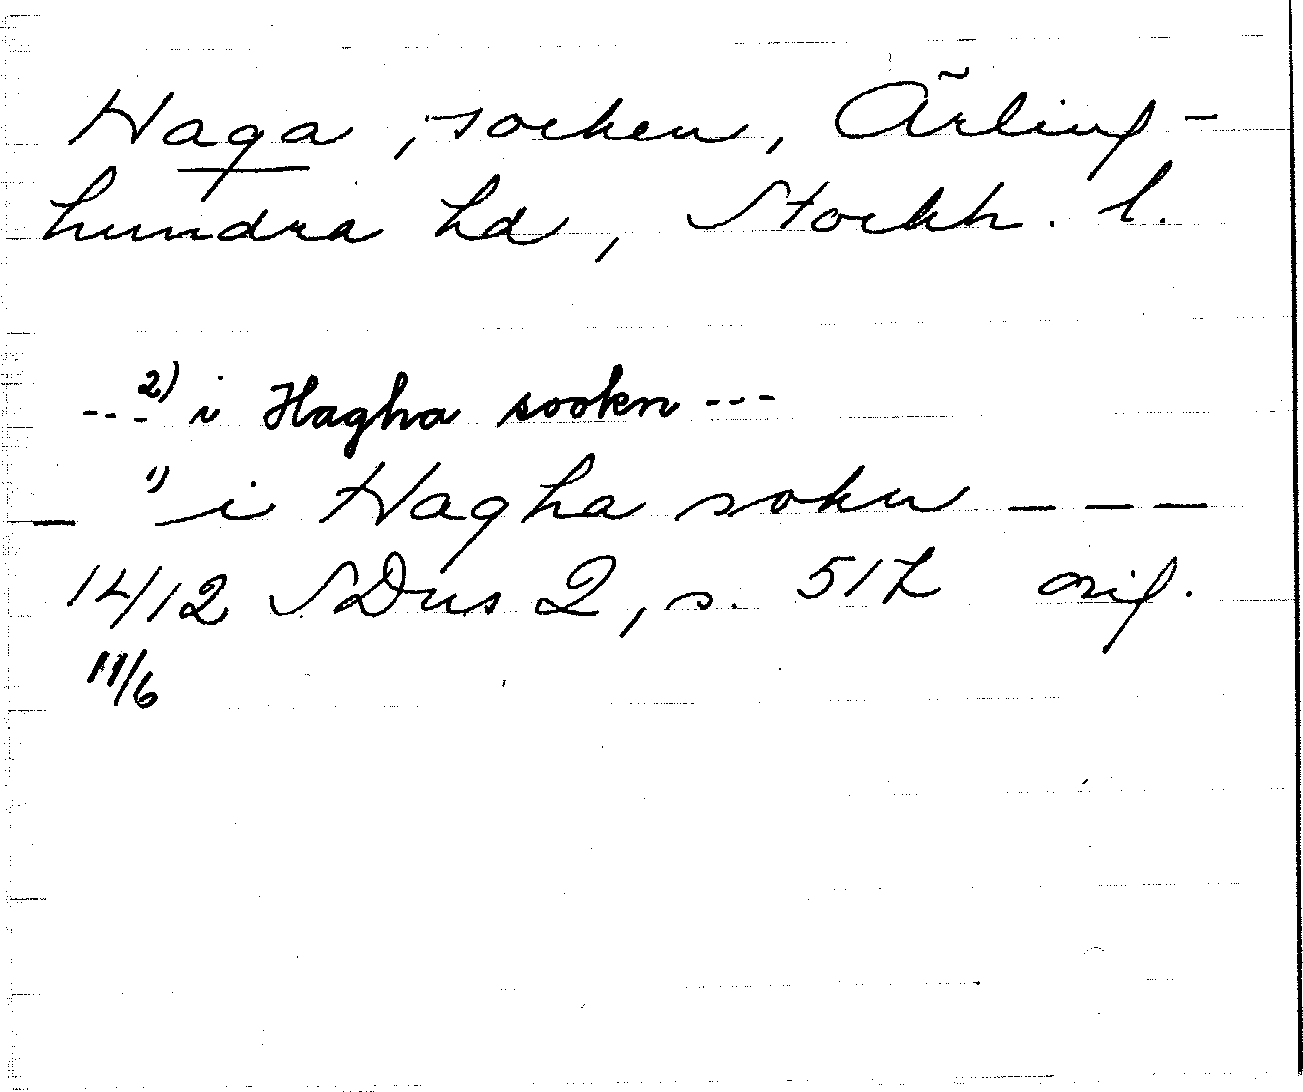 Haga, socken, Ärling-
hundra hd, Stockh. l.
--- 2) i Hagha sookn ---
— 1) i Hagha sokn — — —
14/12 SDns 2, s. 517 orig.
11/6